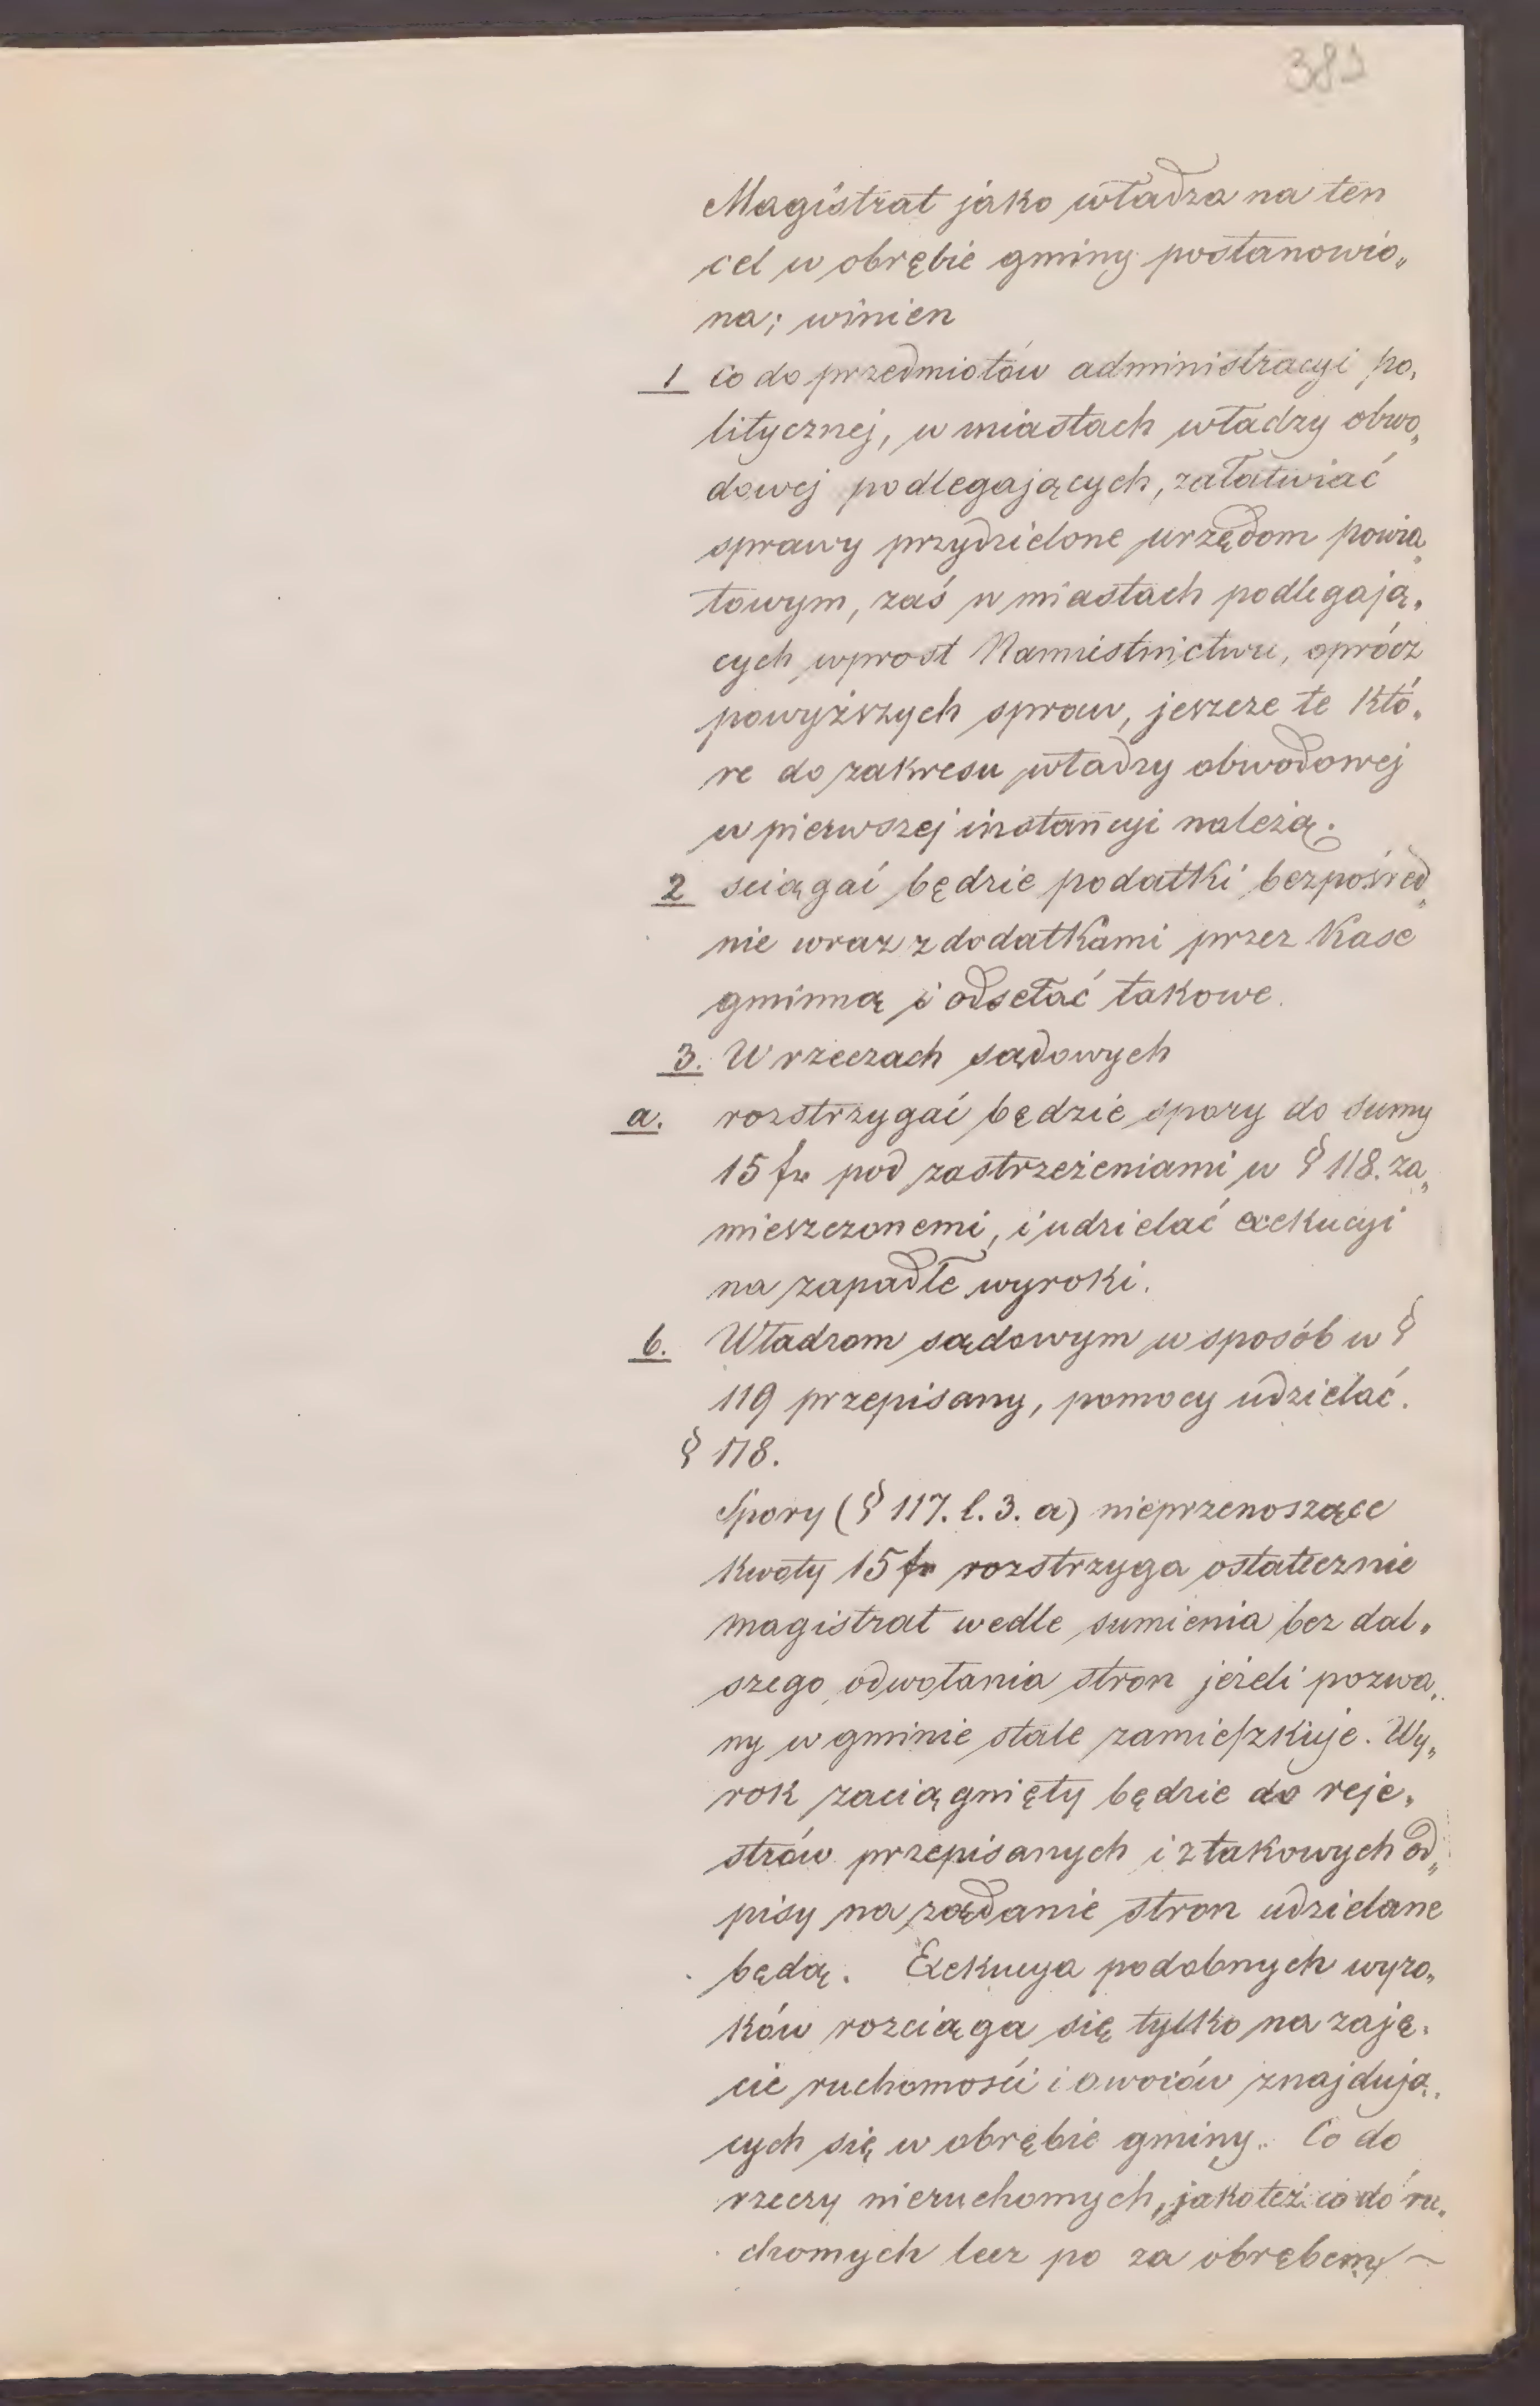 389
Magistrat jako władza na ten
cel w obrębie gminy postanowio„
na; winien
1 Co do przedmiotów administracyi po„
litycznej, w miastach władzy obwo„
dowej podlegających, załatwiać
sprawy przydzielone urzędom powia„
towym, zaś w miastach podlegają„
cych wprost Namiestnictwu, oprócz
powyższych spraw, jeszcze te któ„
re do zakresu władzy obwodowej
w pierwszej instancyi należą.
2 sciągać będzie podatki bezpośred„
nie wraz z dodatkami przez Kase
gminną i odsełać takowe.
3. W rzeczach sądowych
a. rozstrzygać będzie spory do sumy
15 fr pod zastrzeżeniami w § 118. za„
mieszczonemi, i udzielać exekucyi
na zapadłe wyroki.
b. Władzom sądowym w sposób w §
119 przepisany, pomocy udzielać.
§ 118.
Spory (§ 117. l. 3. a) nieprzenoszące
Kwoty 15 fr rozstrzyga ostatecznie
magistrat wedle sumienia bez dal„
szego odwołania stron jeżeli pozwa„
ny w gminie stale zamieſzkuje. Wy„
rok zaciągnięty będzie do reje„
strów przepisanych i z takowych od„
pisy na żądanie stron udzielane
będą. Exekucya podobnych wyro„
ków rozciąga się tylko na zaję„
cie ruchomości i owoców znajdują„
cych się w obrębie gminy. Co do
rzeczy nieruchomych, jakoteż co do ru„
chomych lecz po za obrębem